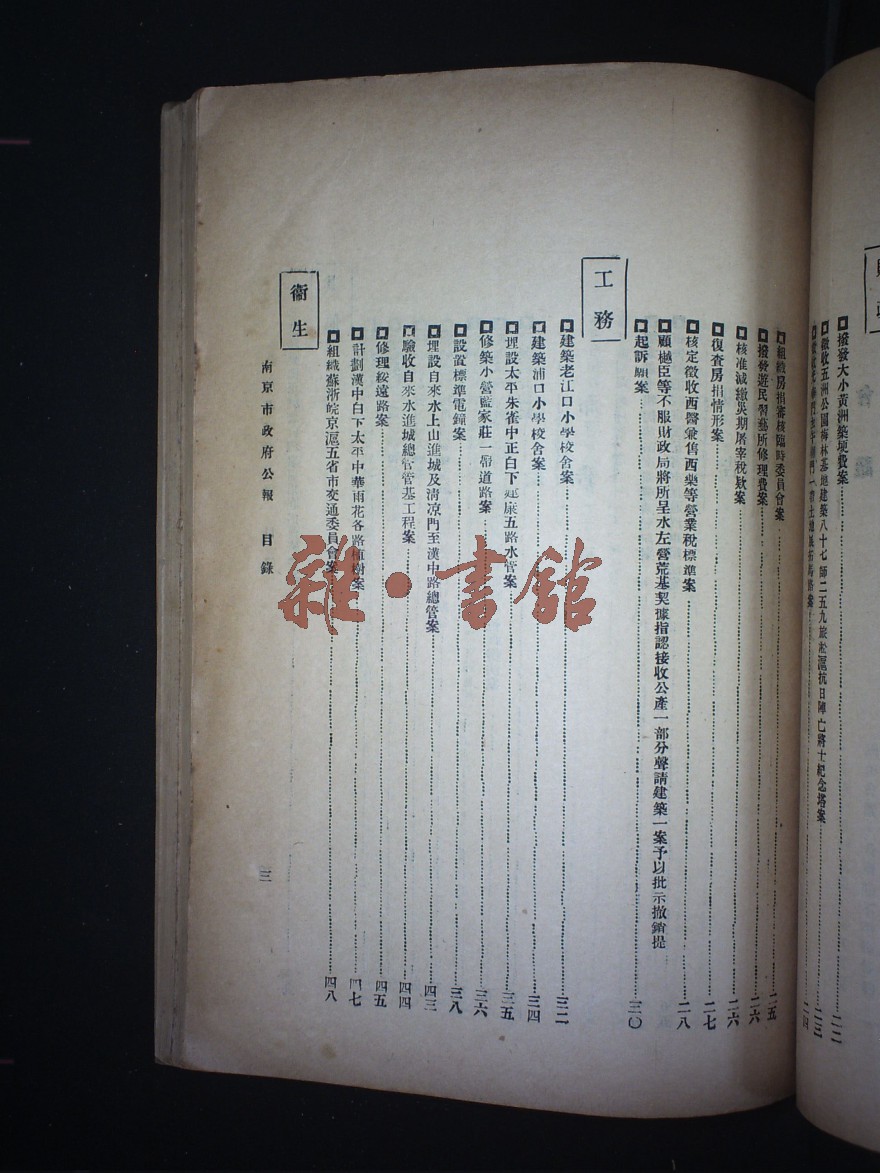 撥發大小黃洲築埂費案 二二
徵收五洲公園梅林基地建築八十七師二五九旅淞滬抗日陣亡將士紀念塔案 二三
組織房捐審核臨時委員會案 二五
撥發遊民習藝所修理費案 二六
核准減繳災期屠宰稅欵案 二六
復查房捐情形案 二七
核定徵收西醫兼售西藥等營業稅標準案 二八
顧樾臣等不服財政局將所呈水左營荒基契據指認接收公產一部分聲請建築一案予以批示撤銷提
起訴願案 三〇
工務
建築老江口小學校舍案 三二
建築浦口小學校舍案 三四
埋設太平朱雀中正白下建康五路水管案 三五
修築小營藍家莊一帶道路案 三六
設置標準電鐘案 三八
埋設自來水上山進城及清凉門至漢中路總管案 四三
驗收自來水進城總管管基工程案 四四
修理綏遠路案 四五
計劃漢中白下太平中華雨花各路植樹案 四七
組織蘇浙皖京滬五省市交通委員會案 四八
衞生
南京市政府公報 目錄
三
雜·書館